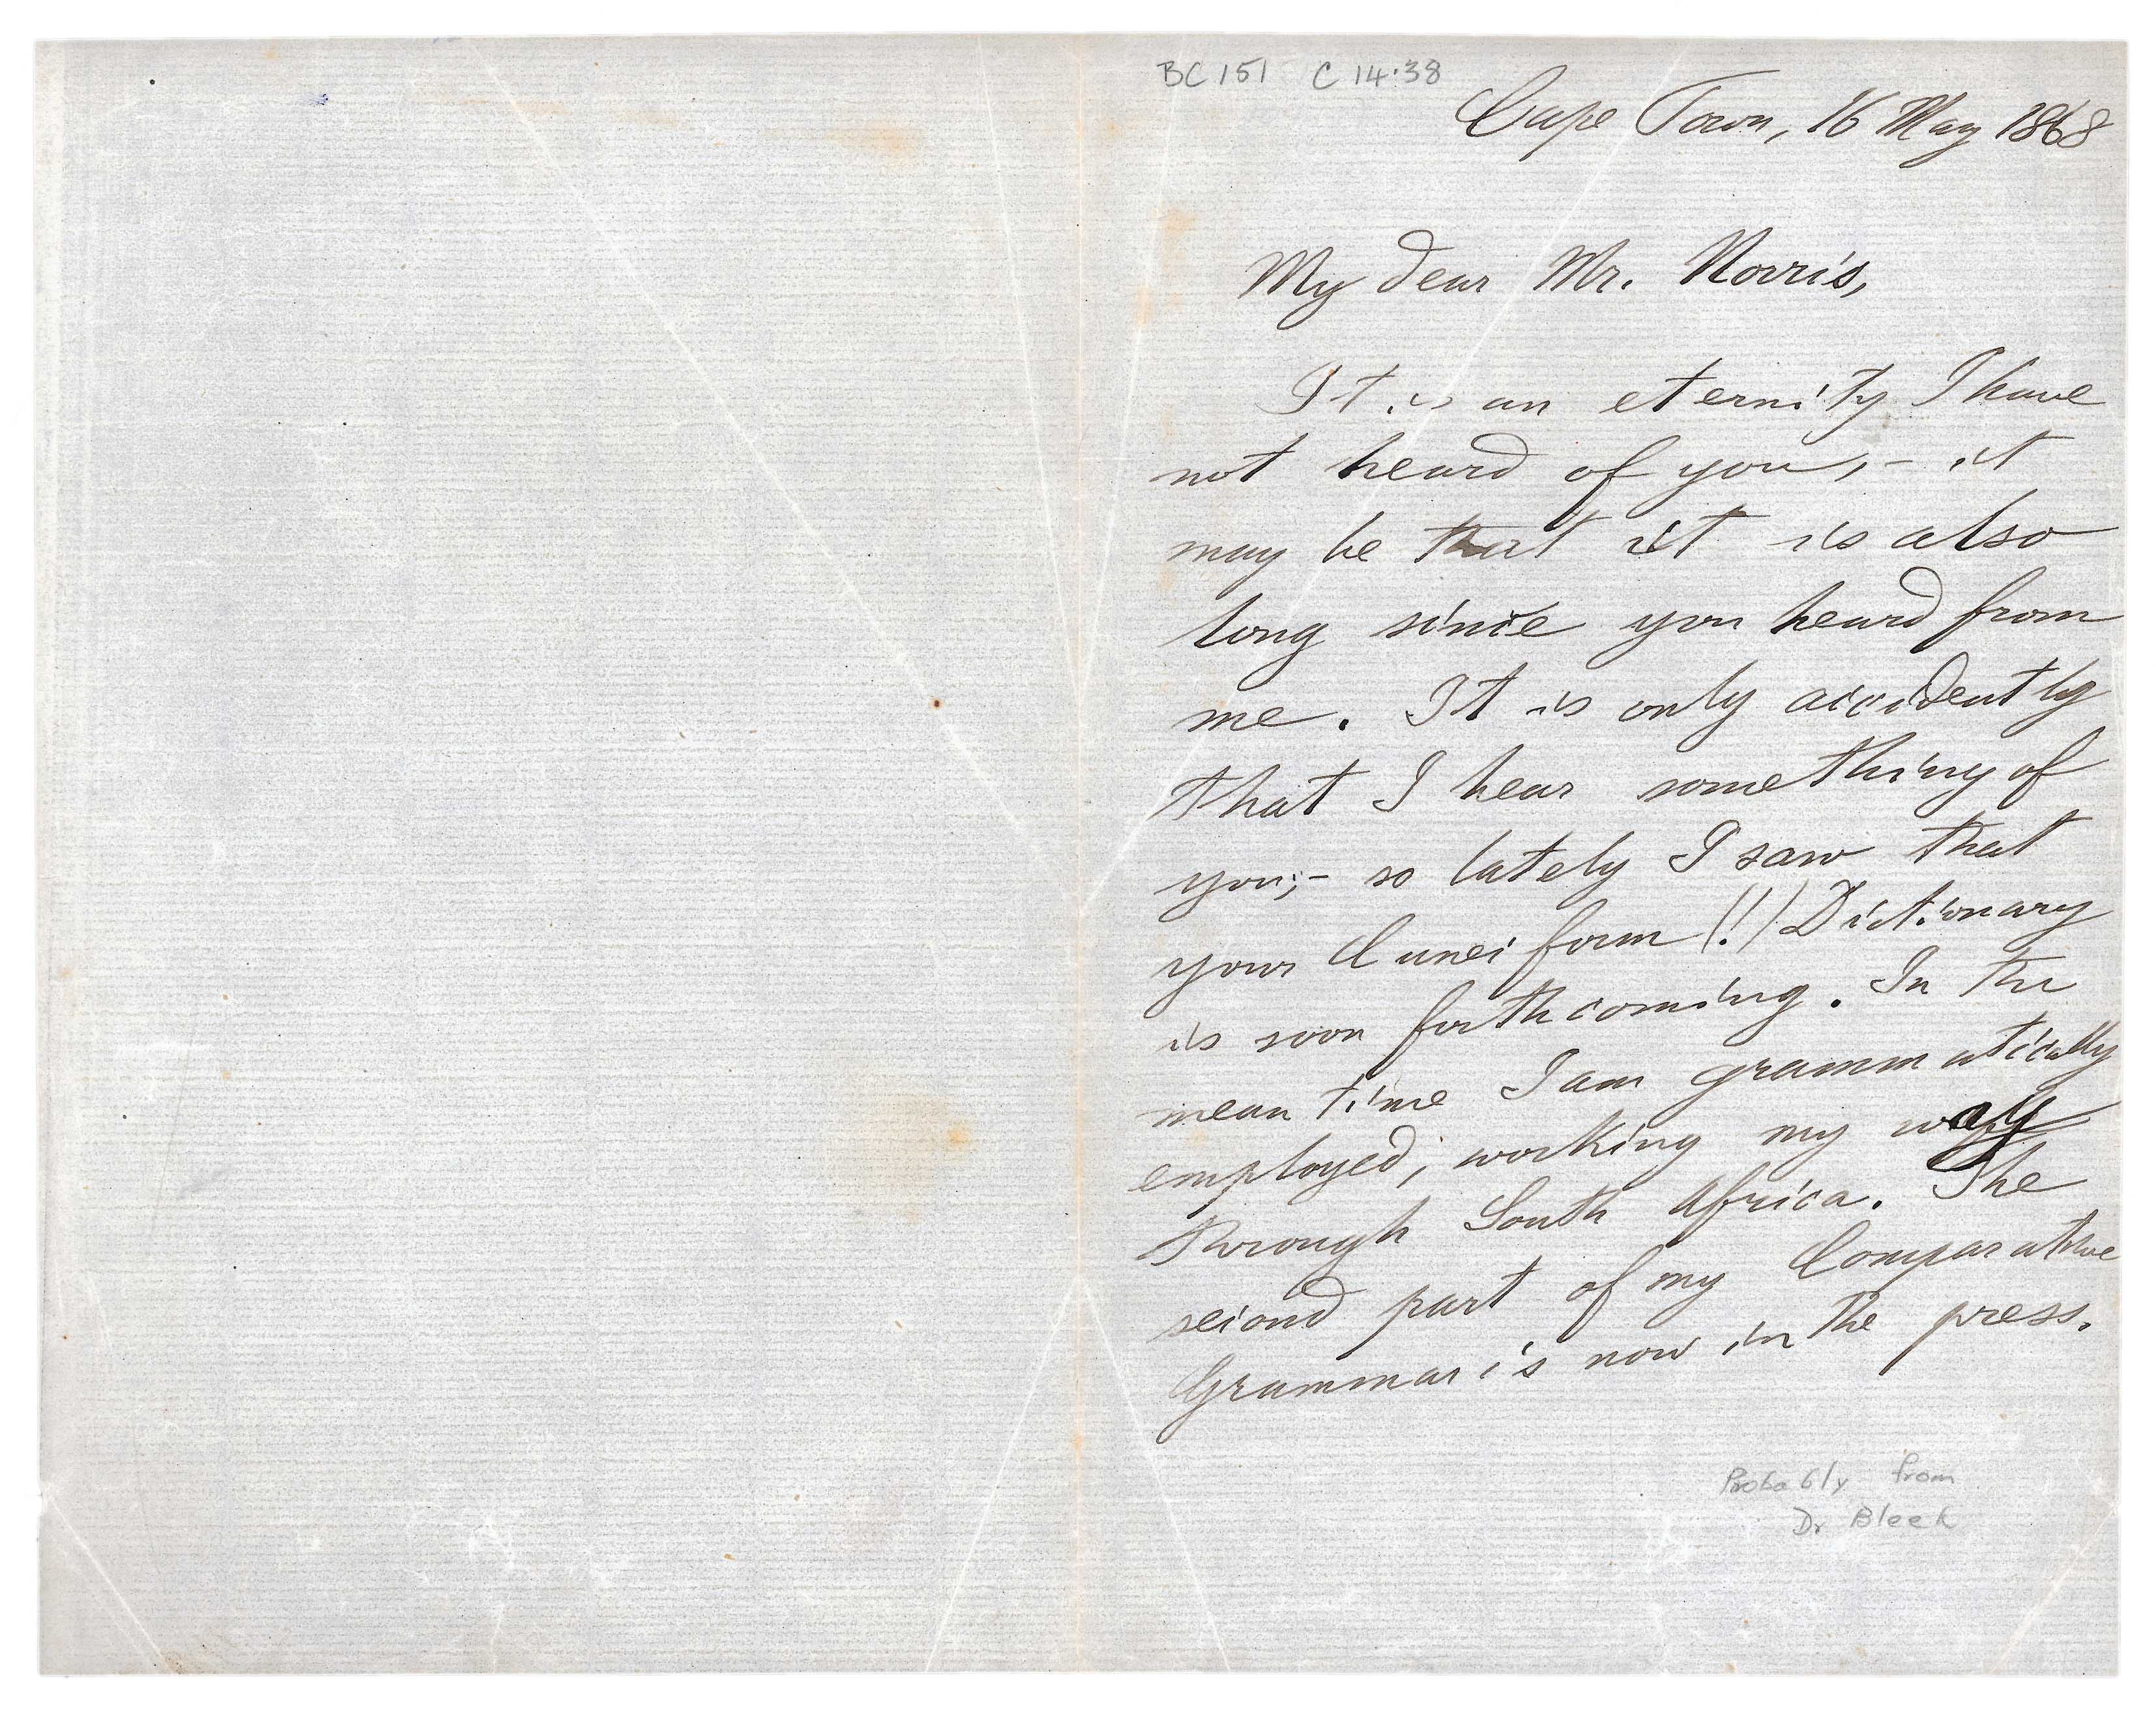 BC 151 C 14.38
Cape Town, 16 May 1868
My dear Mr. Norris,
It is an eternity I have
not heard of you, - it
may be that it is also
long since you heard from
me. It is only accidently
that I hear something of
you; - so lately I saw that
your Cuneiform (!) Dictionary
is soon forthcoming. In the
mean time I am grammatically
employed, working my way
through South Africa. The
second part of my Comparative
Grammar is now in the press.
Probably from
Dr Bleek